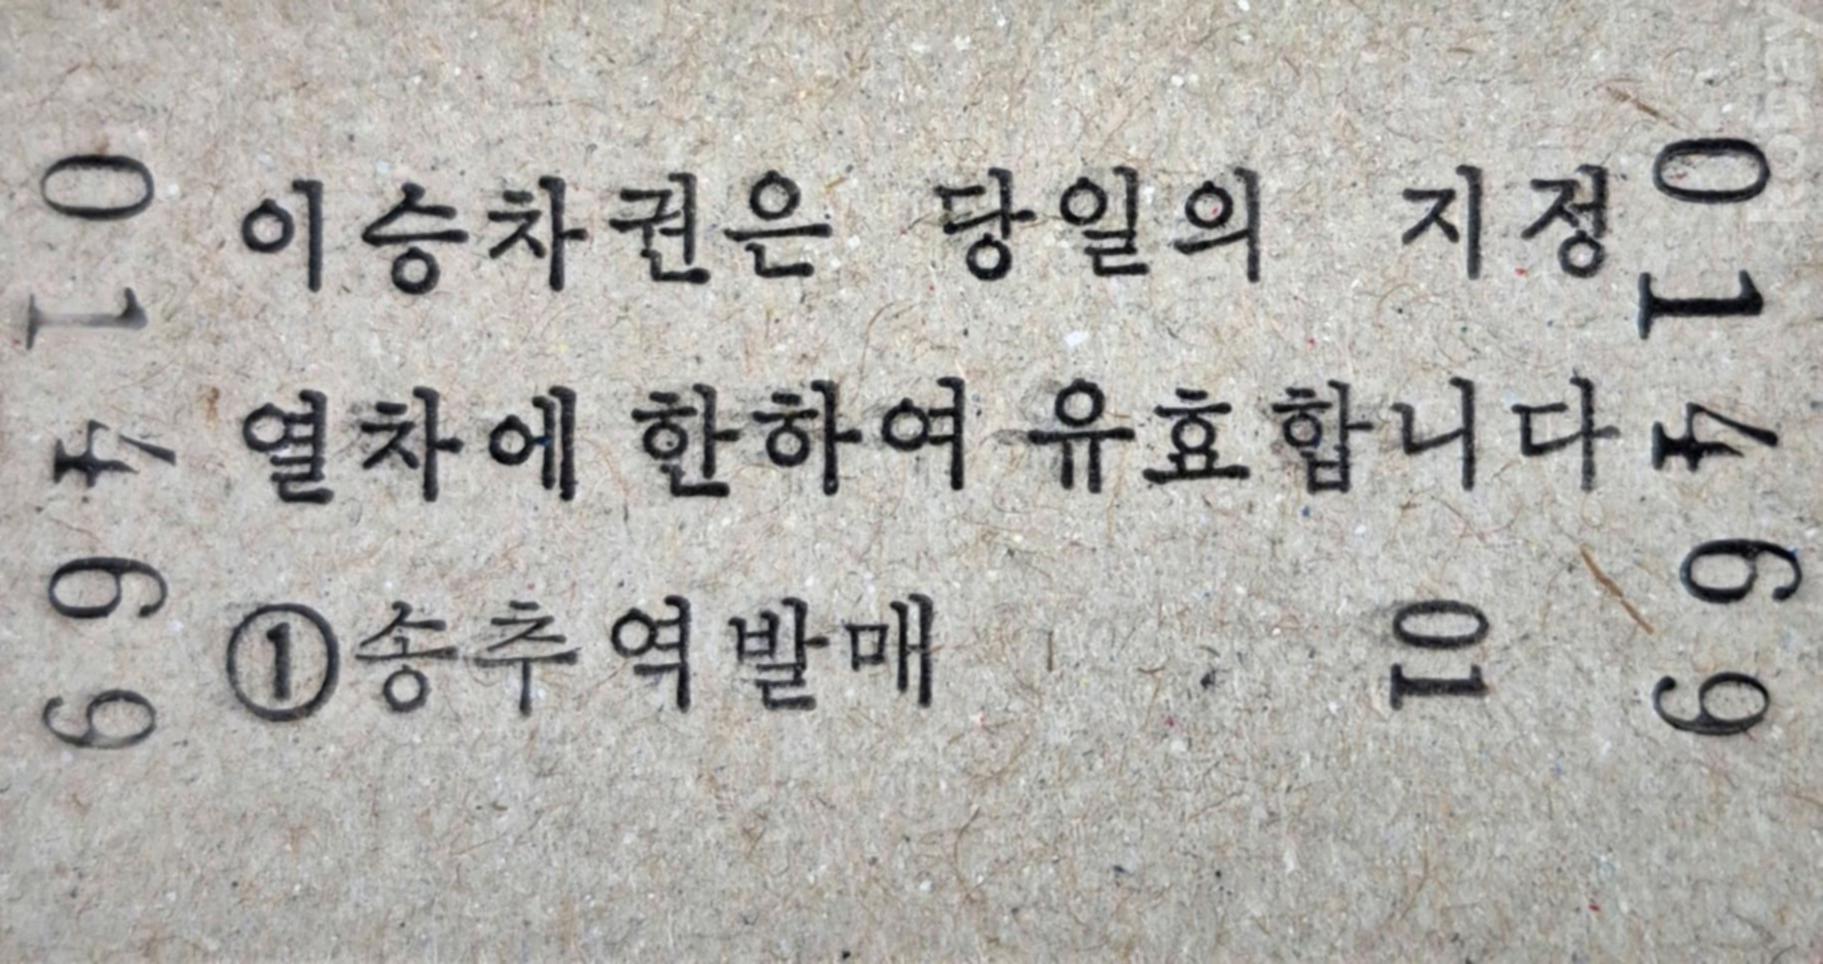 01469
이승차권은 당일의 지정
열차에 한하여 유효합니다
①송추역발매 01
01469